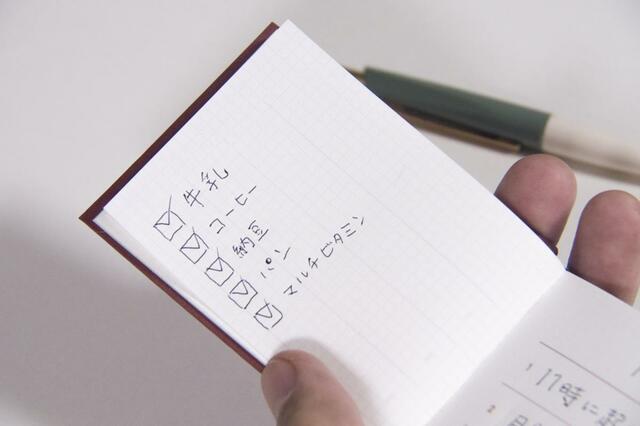 ☑ 牛乳
☑ コーヒー
☑ 納豆
☑ パン
☑ マルチビタミン
1 17時に起
2